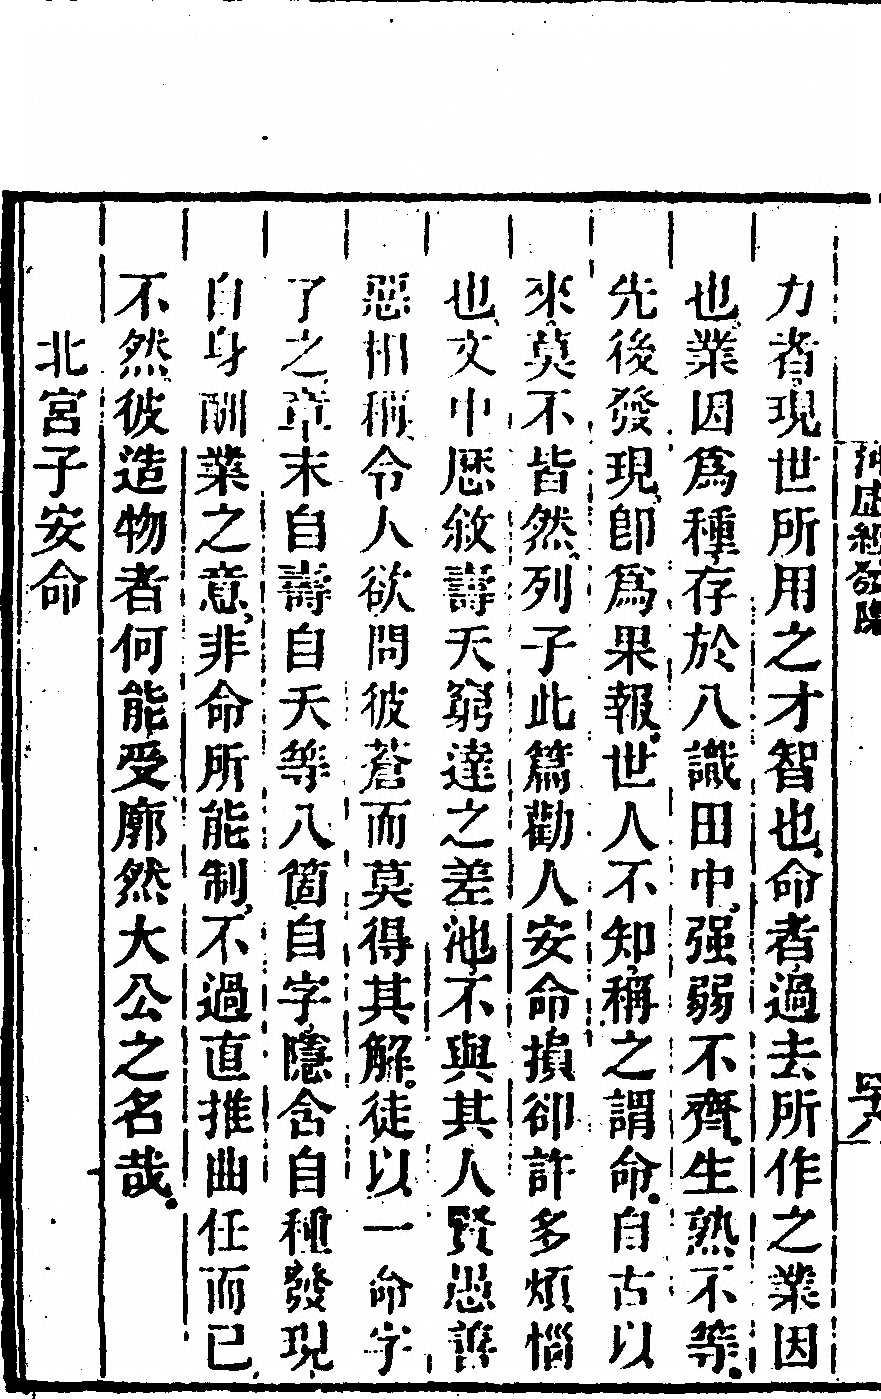 力者現世所用之才智也命者過去所作之業因
也業因爲種存於八識田中强弱不齊生熟不等
先後發現卽爲果報世人不知稱之謂命自古以
來莫不皆然列子此篇勸人安命損卻許多煩惱
也文中歷敘壽夭窮達之差池不與其人賢愚善
惡相稱令人欲問彼蒼而莫得其解徒以一命字
了之章末自壽自夭等八箇自字隱含自種發現
自身酬業之意非命所能制不過直推曲任而已
不然彼造物者何能受廓然大公之名哉
北宮子安命